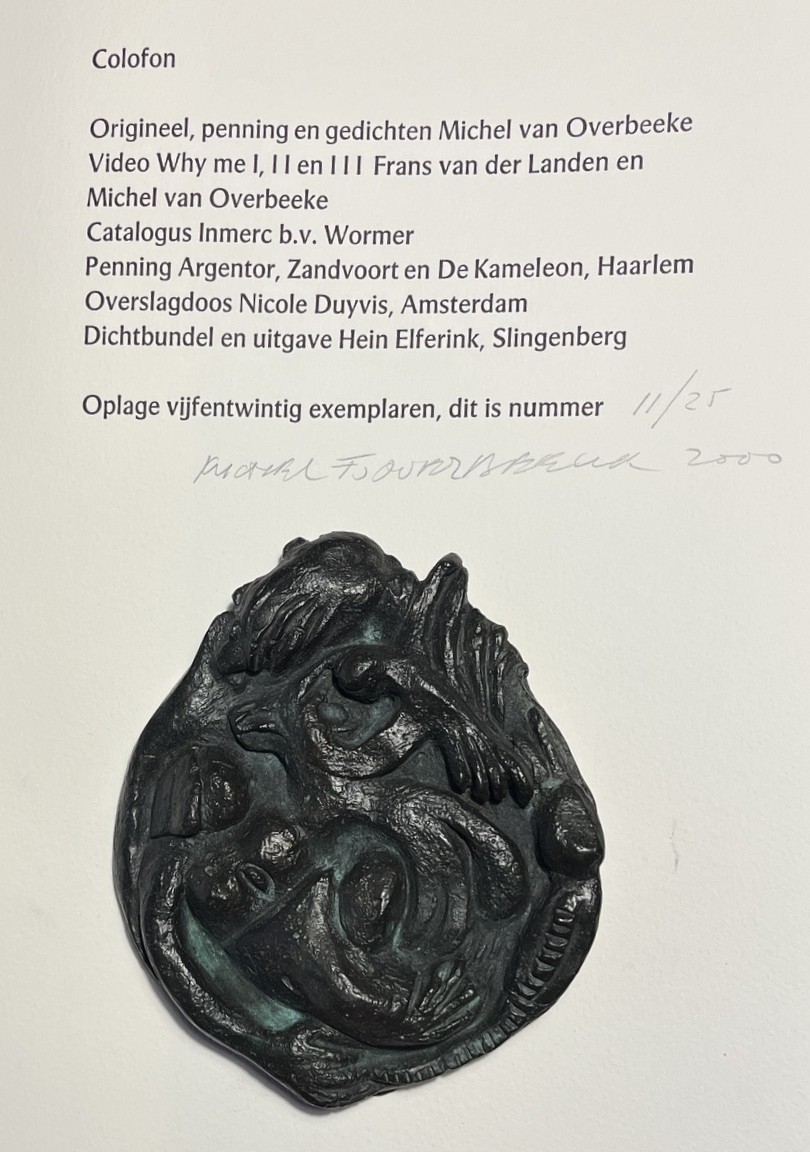 Colofon
Origineel, penning en gedichten Michel van Overbeeke
Video Why me I, I I en I I I Frans van der Landen en
Michel van Overbeeke
Catalogus Inmerc b.v. Wormer
Penning Argentor, Zandvoort en De Kameleon, Haarlem
Overslagdoos Nicole Duyvis, Amsterdam
Dichtbundel en uitgave Hein Elferink, Slingenberg
Oplage vijfentwintig exemplaren, dit is nummer 11/25
2000